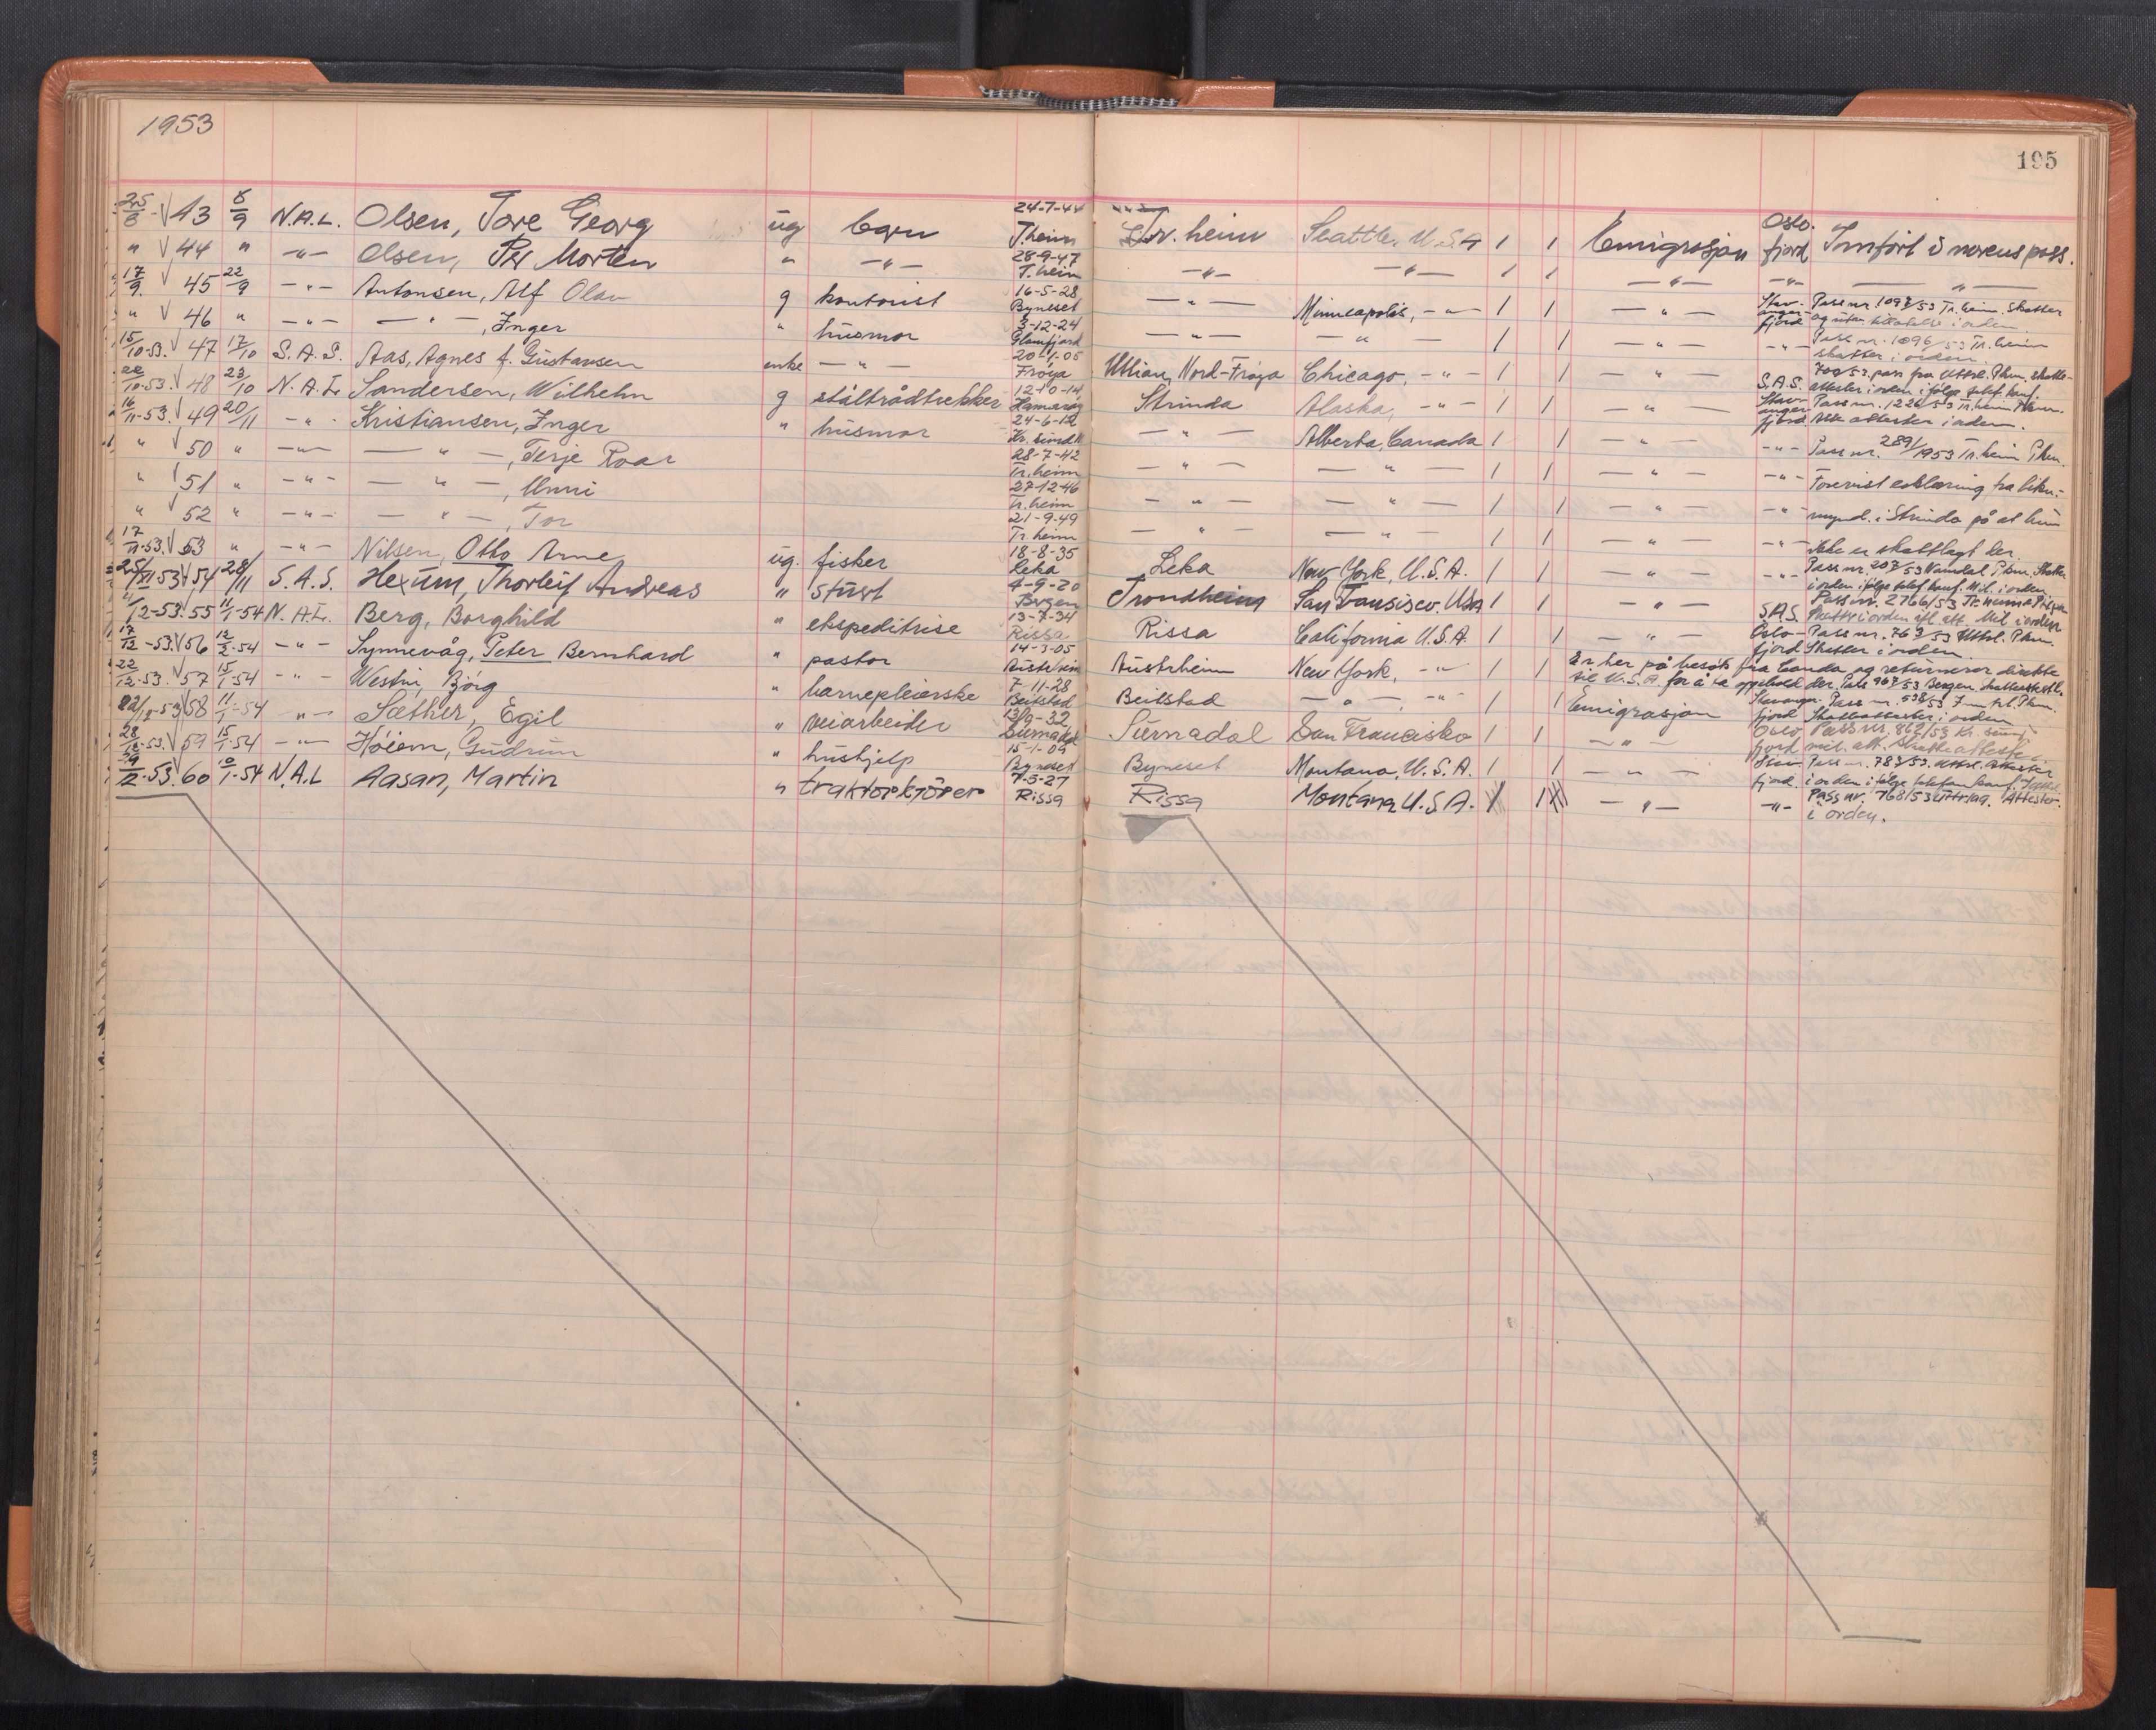 1953
195
25/8 - √ 43 8/9 N.A.L. Olsen, Tore Georg ug barn 24-7-44 T.heim Tr. heim Seattle, U.S.A 1 1 Emigrasjon Oslo. fjord Innført i morens pass.
" √ 44 " -"- Olsen, Per Morten " -"- 28-9-47 T.heim -"- -"- 1 1 -"- -"- -"-
17/9. √ 45 22/9 -"- Antonsen, Alf Olav g kontorist 16-5-28 Byneset -"- Minneapolis, -"- 1 1 -"- Stav- anger- fjord Pass nr. 1097/53 Tr.heim. Skatter og i orden.
" √ 46 " -"- -"-, Inger " husmor 3-12-24 Glomfjord -"- -"- 1 1 -"- -"- Pass nr. 1096/53 Tr.heim skatter i orden.
15/10-53. √ 47 17/10 S.A.S. Aas, Agnes f. Gustavsen enke -"- 20-1-05 Frøya Uttian, Nord-Frøya Chicago, -"- 1 1 -"- S.A.S. 709/53 pass fra Uttrl. Pkm. skatte- attester i orden ifølge telef. konf.
22/10-53. √ 48 23/10 N.A.L Sandersen, Wilhelm g ståltrådtrekker 12-10-14 Hamarøy Strinda Alaska, -"- 1 1 -"- Stav- anger fjord Pass nr. 1226/53 Tr.heim Pkm. Alle attester i orden.
16/11-53. √ 49 20/11 -"- Kristiansen, Inger " husmor 24-6-12 Kr.sund N. -"- Alberta, Canada 1 1 -"- -"- Pass nr. 289/1953 Tr.heim Pkm.
" √ 50 " -"- -"-, Terje Roar 28-7-42 Tr.heim -"- -"- 1 1 -"- -"- Forevist erklæring fra likn.-
" √ 51 " -"- -"-, Unni 27-12-46 Tr.heim -"- -"- 1 1 -"- -"- mynd. i Strinda på at hun
" √ 52 " -"- -"-, Tor 21-9-49 Tr.heim -"- -"- 1 1 -"- -"- ikke er skattlagt der.
17/11-53. √ 53 " -"- Nilsen, Otto Arne ug. fisker 18-8-35 Leka Leka New York, U.S.A. 1 1 -"- -"- Pass nr. 207/53 Namdal Pkm. Skatter i orden ifølge telef. konf. Mil. i orden.
25/11-53 √ 54 28/11 S.A.S. Hexum, Thorleif Andreas " stuert 4-9-20 Trondheim San Fansisco. USA 1 1 -"- S.A.S. Pass nr. 2766/53 Tr.heim Skatt i orden ifl att. Mil i orden
/12-53. 55 11/1-54 N.A.L. Berg, Borghild " ekspeditrise 13-7-34 Rissa Rissa California U.S.A. 1 1 -"- Oslo- fjord Pass nr. 767/53 Uttrl. Pkm. Skatter i orden.
17/12-53. √ 56 12/2-54 -"- Synnevåg, Peter Bernhard " pastor 14-3-05 Austrheim Austrheim New York, -"- 1 1 Er her på besøk fra Canda og returnerer direkte til U.S.A. for å ta opphold der. Pass 967/53 Bergen.
22/12-53. √ 57 15/1-54 -"- Westin, Bjørg " barnepleierske 7-11-28 Beitstad Beitstad -"- -"- 1 1 Emigrasjon Stavanger- fjord Pass nr. 538/53 Skatteattester i orden
22/12-53 √ 58 11/1-54 -"- Sæther, Egil " veiarbeider 12/9-32 Surnadal Surnadal San Francisko 1 1 -"- Oslo fjord Pass nr. 862/53 Kr.sund mil. att. skatteattester
28/12-53. √ 59 15/1-54 -"- Høiem, Gudrun " hushjelp 15-1-09 Byneset Byneset Montana, U.S.A. 1 1 -"- Stav. fjord. Pass nr. 787/53. Uttrl. Attester i orden ifølge telefon konf.
29/12-53. 60 10/1-54 N.A.L Aasan, Martin " traktorkjører 7-5-27 Rissa Rissa Montana U.S.A. 1 1 -"- -"- Pass nr. 768/53 Uttrlag. Attester i orden.